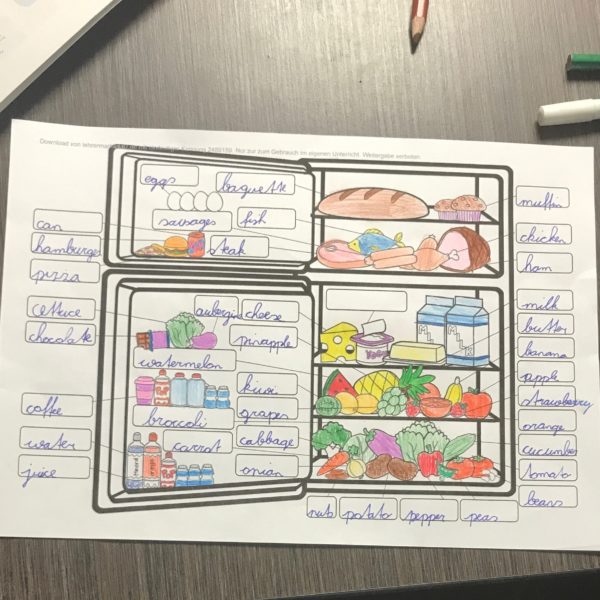 Nur zum Gebrauch im eigenen Unterricht. Weitergabe verboten.
eggs
baguette
muffin
can
sausages
fish
chicken
hamburger
steak
ham
pizza
lettuce
aubergin
cheese
milk
chocolate
pinapple
butter
watermelon
banana
kiwi
apple
coffee
broccoli
grapes
strawberry
water
carrot
cabbage
orange
juice
onion
cucumber
tomato
beans
nuts
potato
pepper
peas
MILK
MILK